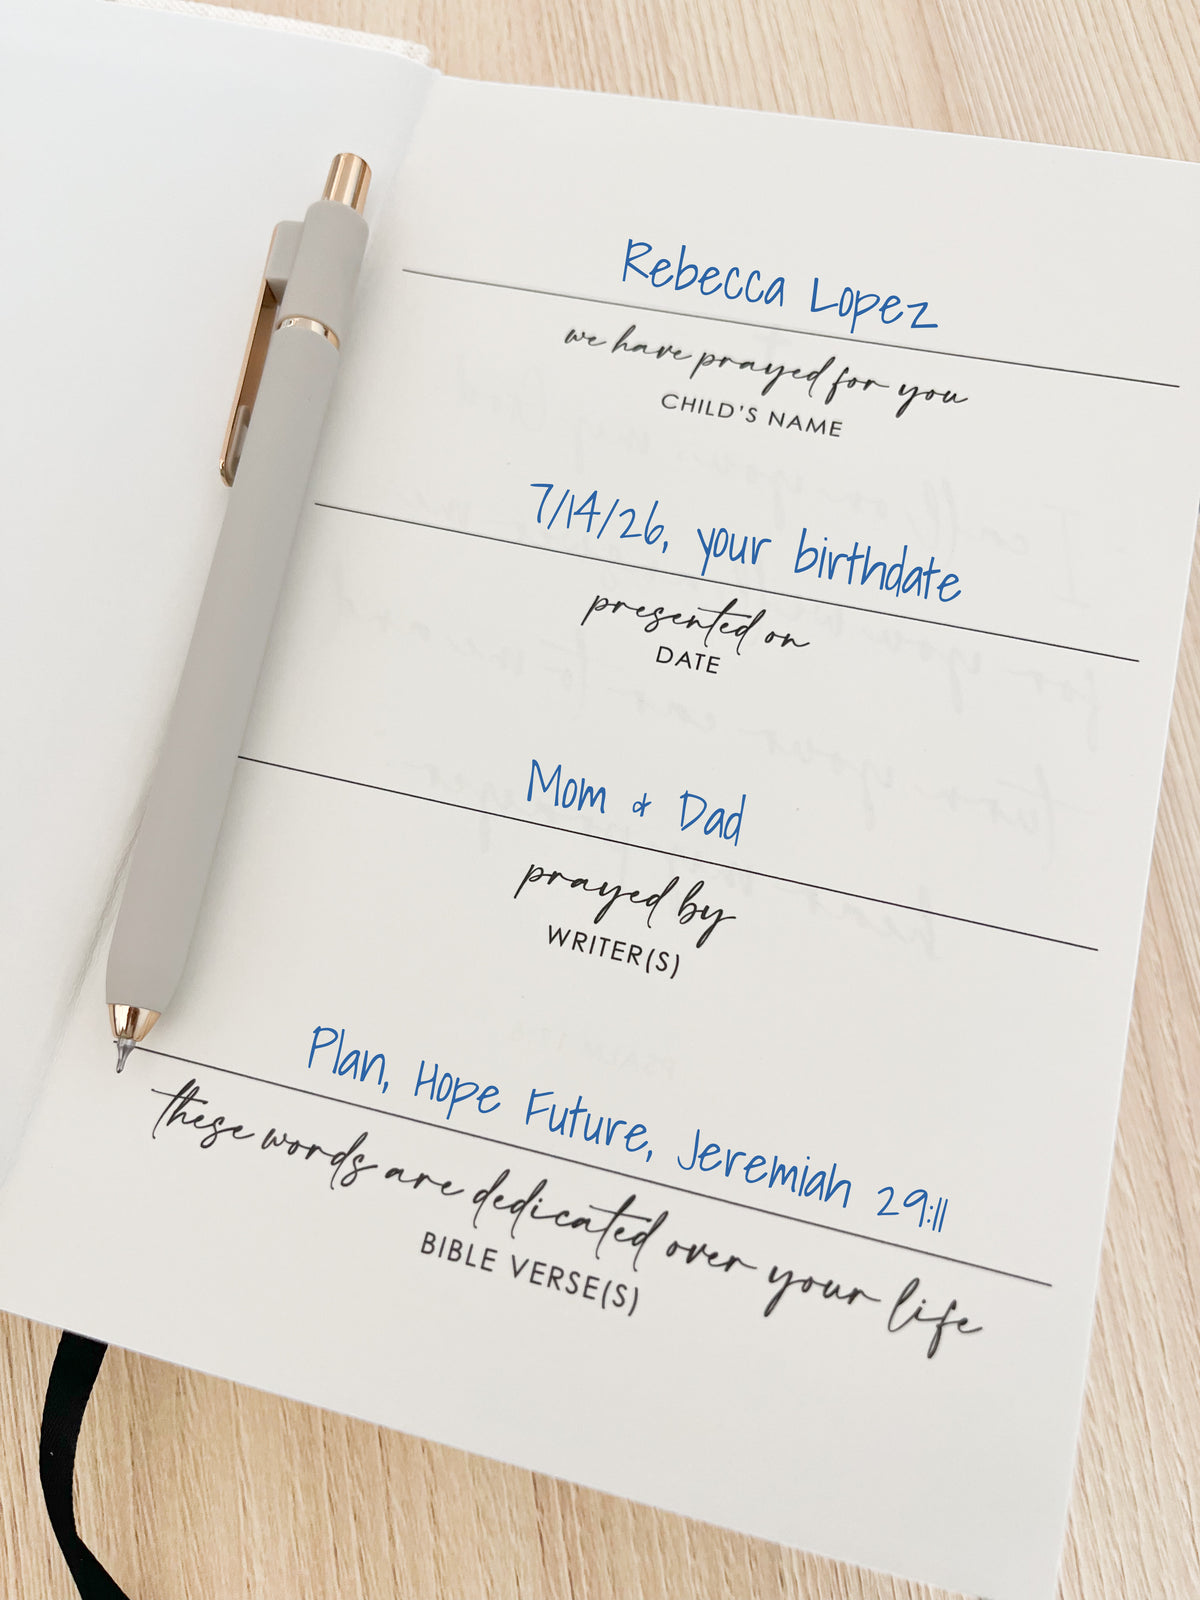 Rebecca Lopez
we have prayed for you
CHILD'S NAME
7/14/26, your birthdate
presented on
DATE
Mom & Dad
prayed by
WRITER(S)
Plan, Hope Future, Jeremiah 29:11
these words are dedicated over your life
BIBLE VERSE(S)